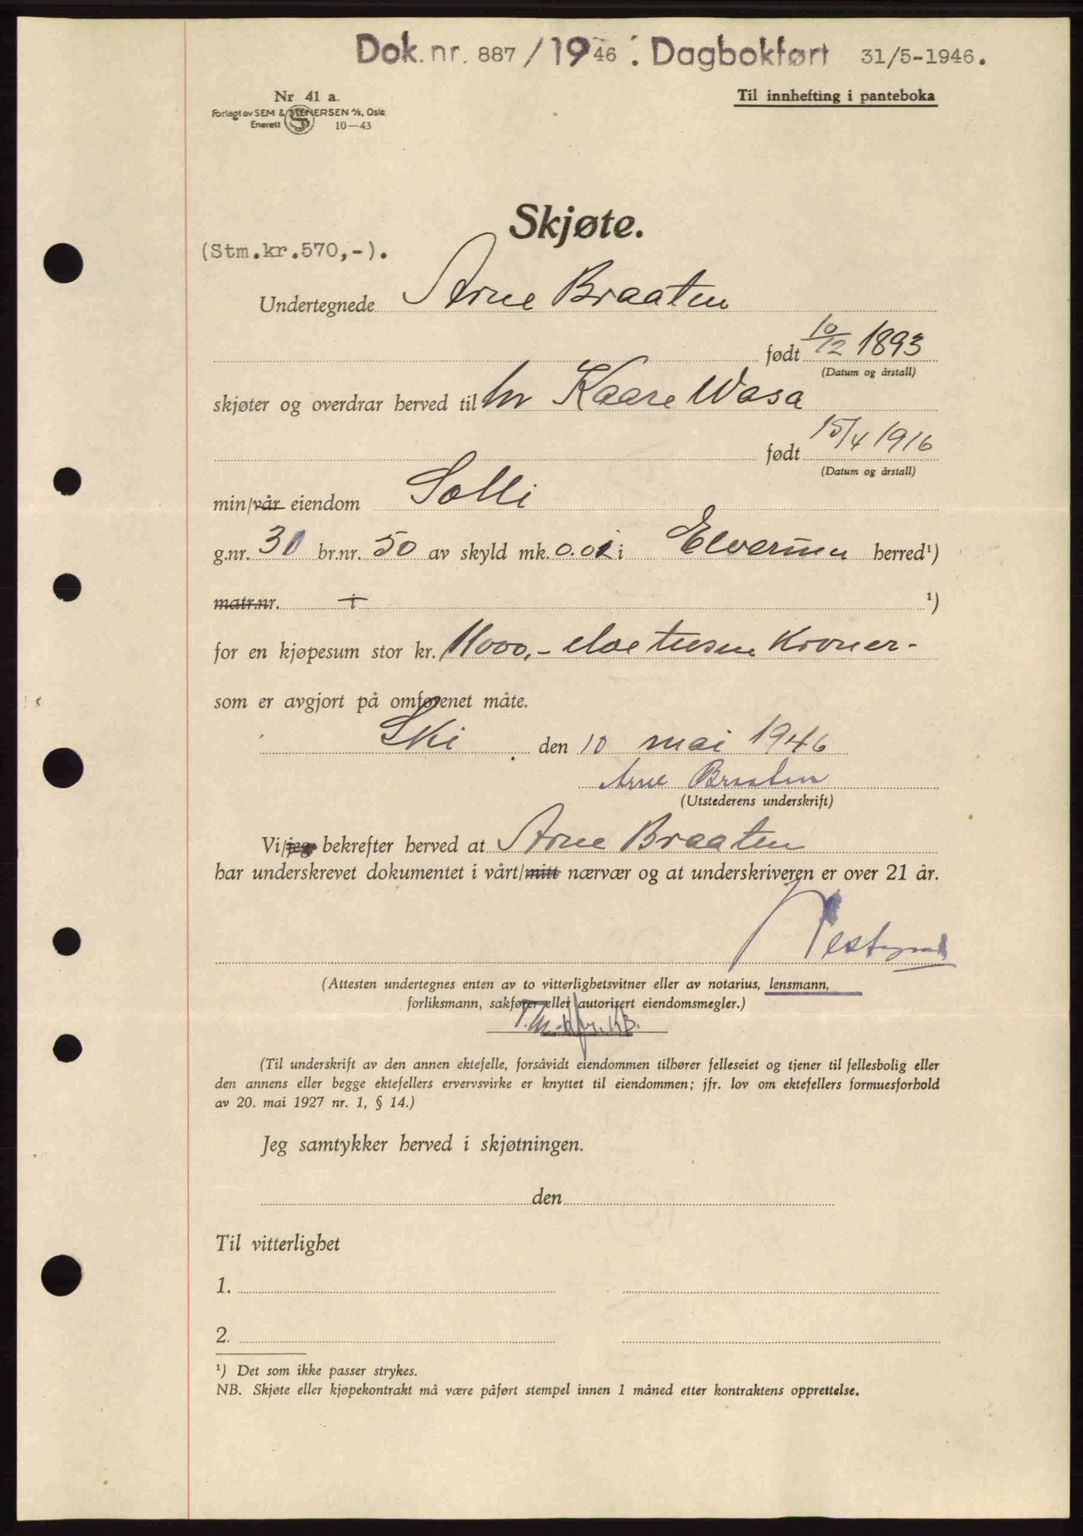 Dok. nr. 887 / 1946 : Dagbokført 31/5-1946.
Nr 41 a.
Forlagt av SEM & STENERSEN A/S, Oslo
Enerett 10—43
Til innhefting i panteboka
Skjøte.
(Stm.kr.570,-).
Undertegnede Arne Braaten
født 10/12 1893
(Datum og årstall)
skjøter og overdrar herved til hr Kaare Wasa
født 15/4 1916
(Datum og årstall)
min/vår eiendom Solli
g.nr. 31 br.nr. 50 av skyld mk. 0.01 i Elverum herred¹)
matr.nr. i ¹)
for en kjøpesum stor kr. 11000,- elve tusen Kroner-
som er avgjort på omforenet måte.
Ski den 10 mai 1946
Arne Braaten
(Utstederens underskrift)
Vi/jeg bekrefter herved at Arne Braaten
har underskrevet dokumentet i vårt/mitt nærvær og at underskriveren er over 21 år.
(Attesten undertegnes enten av to vitterlighetsvitner eller av notarius, lensmann,
forliksmann, sakfører eller autorisert eiendomsmegler.)
(Til underskrift av den annen ektefelle, forsåvidt eiendommen tilhører felleseiet og tjener til fellesbolig eller
den annens eller begge ektefellers ervervsvirke er knyttet til eiendommen; jfr. lov om ektefellers formuesforhold
av 20. mai 1927 nr. 1, § 14.)
Jeg samtykker herved i skjøtningen.
den
Til vitterlighet
1.
2.
¹) Det som ikke passer strykes.
NB. Skjøte eller kjøpekontrakt må være påført stempel innen 1 måned etter kontraktens opprettelse.